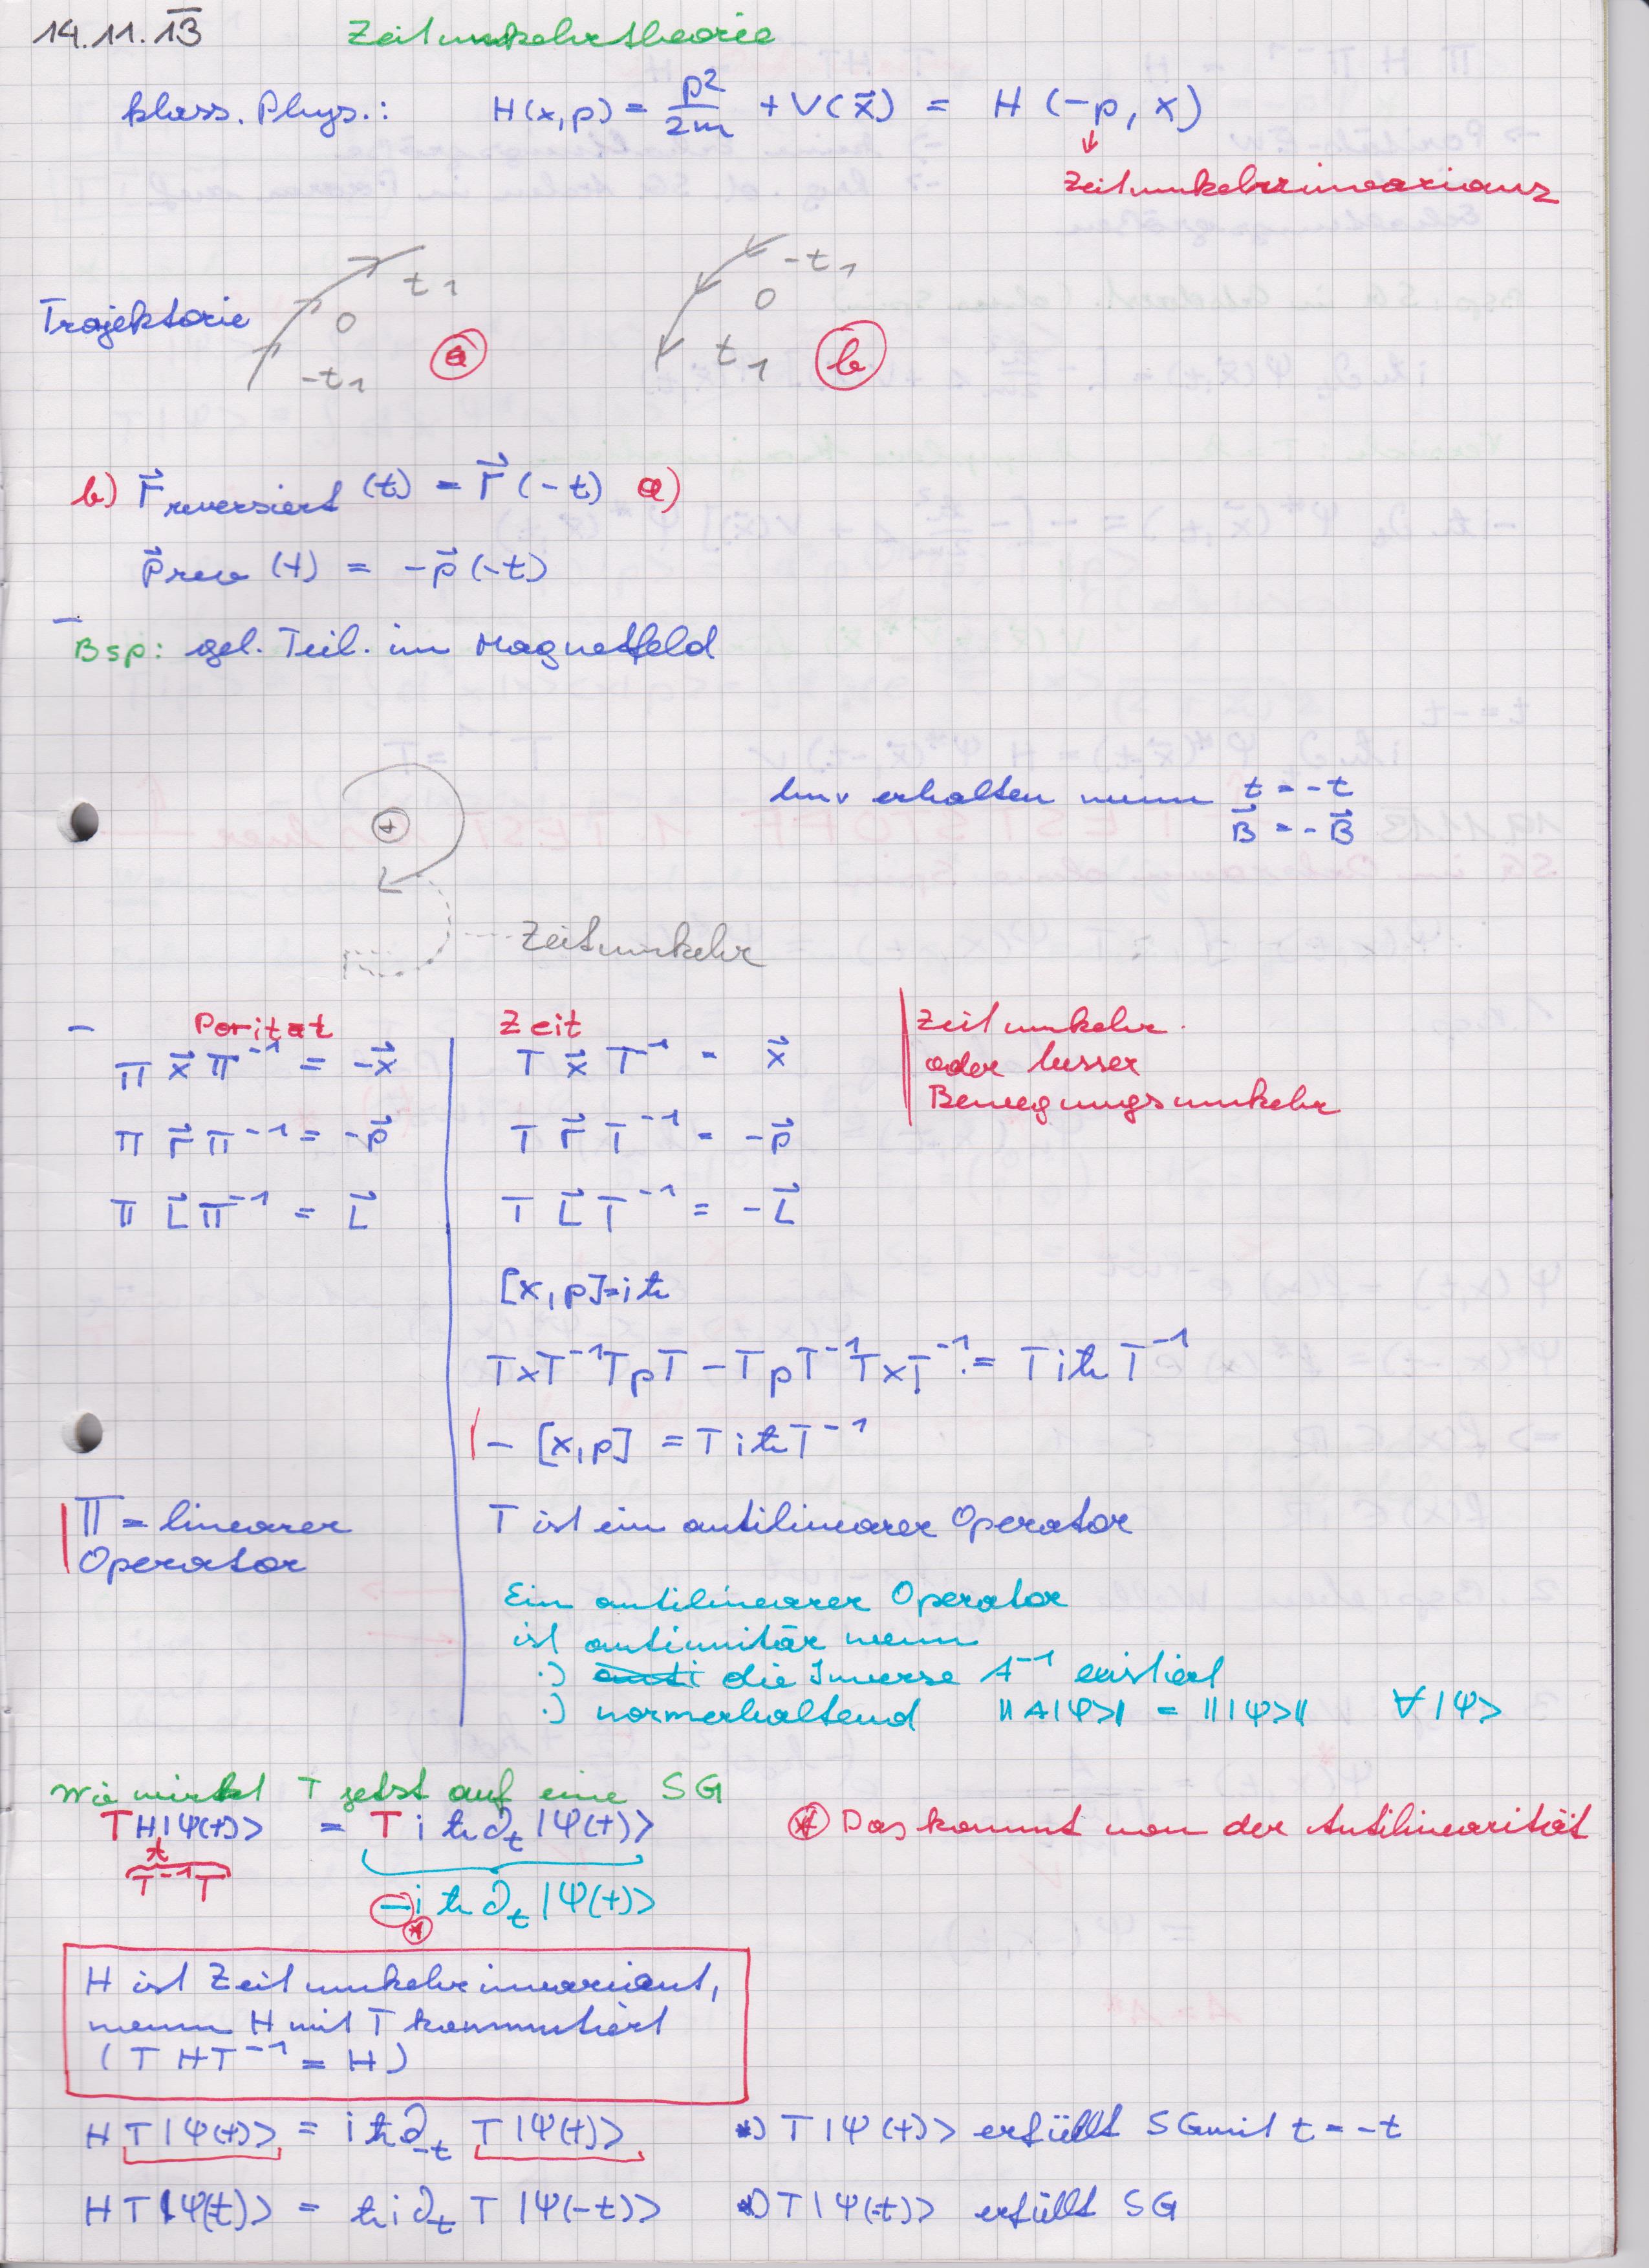 14.11.13 Zeitumkehrtheorie
klass. Phys.: H(x,p) = p²/2m + V(x⃗) = H(-p, x)
↓
Zeitumkehrinvarianz
Trajektorie
t₁
0
-t₁
a
-t₁
0
t₁
b
b) r⃗ reversiert (t) = r⃗(-t) a)
p⃗ rev (t) = -p⃗(-t)
- Bsp: gel. Teil. im Magnetfeld
+
Inv erhalten wenn t = -t
B⃗ = -B⃗
Zeitumkehr
- Parität
π x⃗ π⁻¹ = -x⃗
π r⃗ π⁻¹ = -p⃗
π L⃗ π⁻¹ = L⃗
π = linearer
Operator
Zeit
T x⃗ T⁻¹ = x⃗
T r⃗ T⁻¹ = -p⃗
T L⃗ T⁻¹ = -L⃗
Zeitumkehr
oder besser
Bewegungsumkehr
[x,p]=iħ
TxT⁻¹TpT - TpT⁻¹TxT⁻¹ = TiħT⁻¹
- [x,p] = TiħT⁻¹
T ist ein antilinearer Operator
Ein antilinearer Operator
ist antiunitär wenn
·) die Inverse A⁻¹ existiert
·) normerhaltend ||A|Ψ>|| = |||Ψ>|| ∀|Ψ>
Wie wirkt T jetzt auf eine SG
TH|Ψ(t)> = Tiħ∂t|Ψ(t)>
T⁻¹T
-iħ∂t|Ψ(t)>
*
* Das kommt von der Antilinearität
H ist Zeitumkehrinvariant,
wenn H mit T kommutiert
(THT⁻¹ = H)
HT|Ψ(t)> = iħ∂-t T|Ψ(t)> *) T|Ψ(t)> erfüllt SG mit t = -t
HT|Ψ(t)> = ħi∂t T|Ψ(-t)> *) T|Ψ(-t)> erfüllt SG